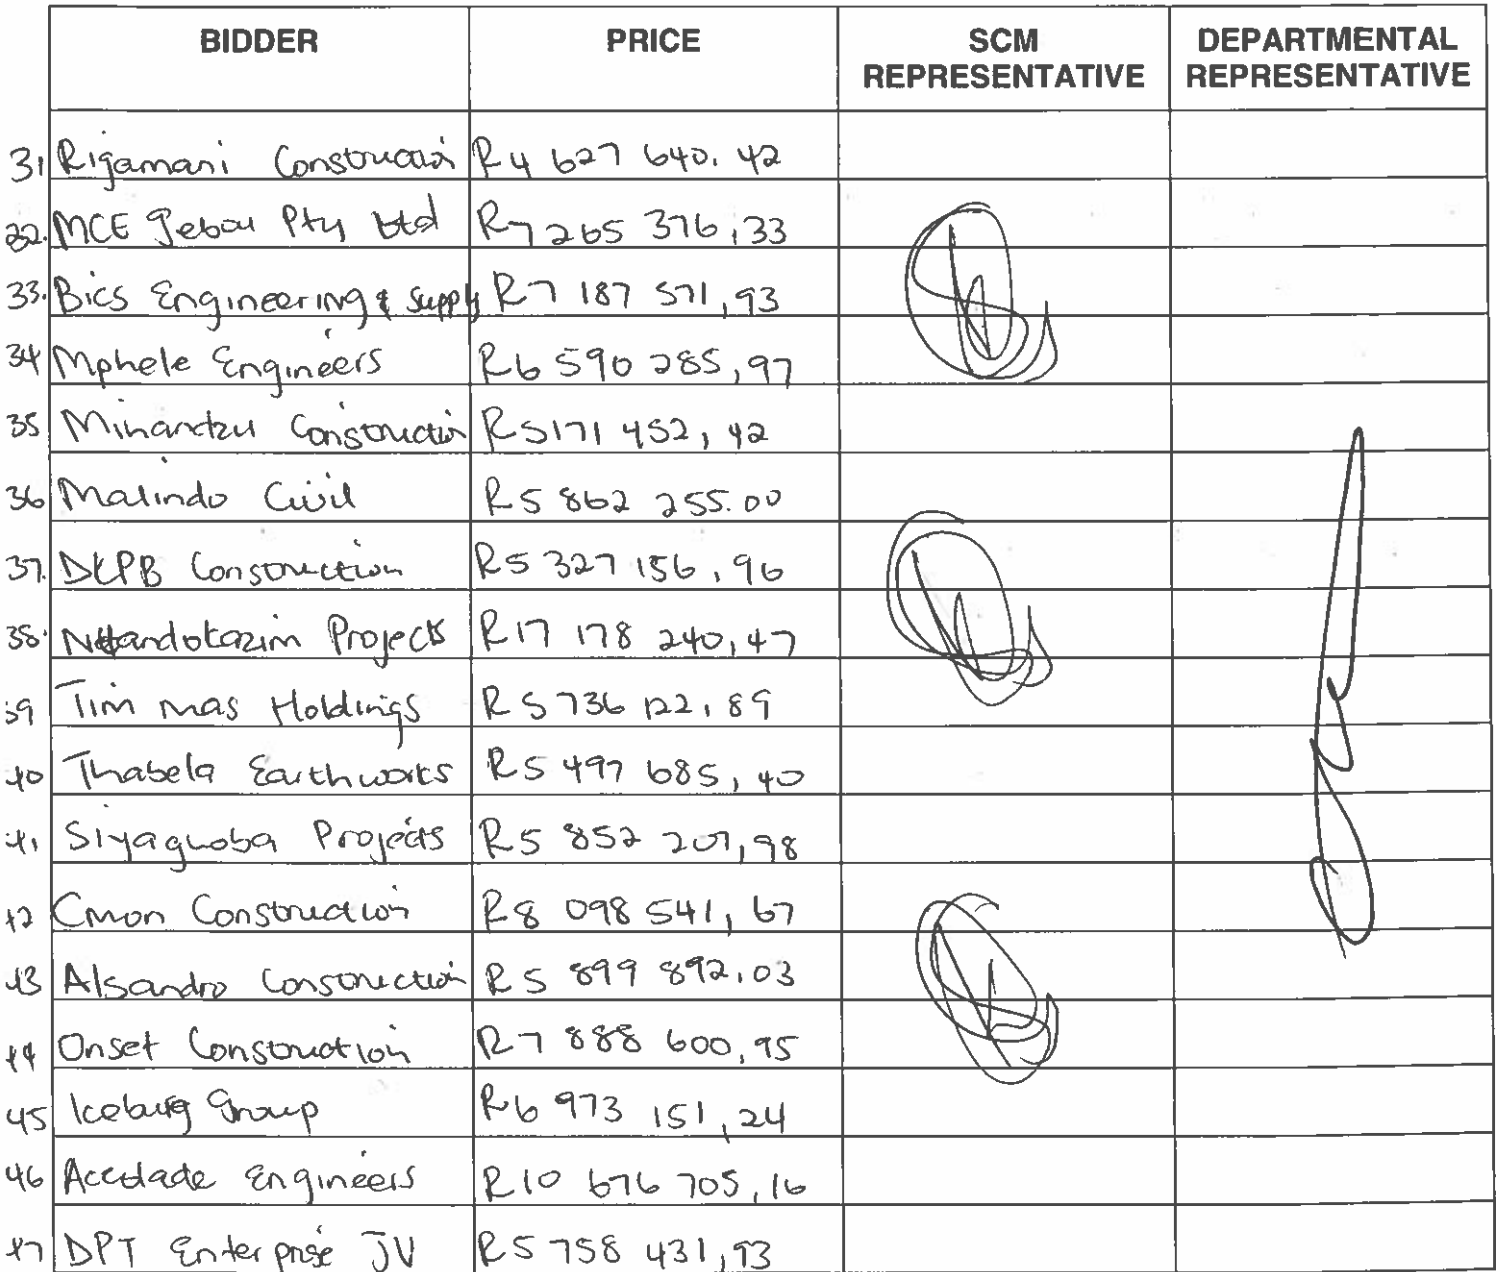 BIDDER PRICE SCM REPRESENTATIVE DEPARTMENTAL REPRESENTATIVE
31 Rigamani Construction R4 627 640.42
32. MCE Pty Ltd R7 265 376,33
33. Bics Engineering & Supply R7 187 571,93
34 Mphele Engineers R6 590 285,97
35 Minandzu Construction R5171 452,42
36 Malindo Civil R5 862 255.00
37. DKPB Construction R5 327 156,96
38. Projects R17 178 240,47
39 Tim mas Holdings R5 736 122,89
40 Thabela Earthworks R5 497 685,40
41 Siyaguoba Projects R5 852 207,98
42 Cmon Construction R8 098 541,67
43 Alsandro Construction R5 899 892.03
44 Onset Construction R7 888 600,95
45 Iceburg Group R6 973 151,24
46 Engineers R10 676 705,16
47 DPT Enterprise JV R5 758 431,93